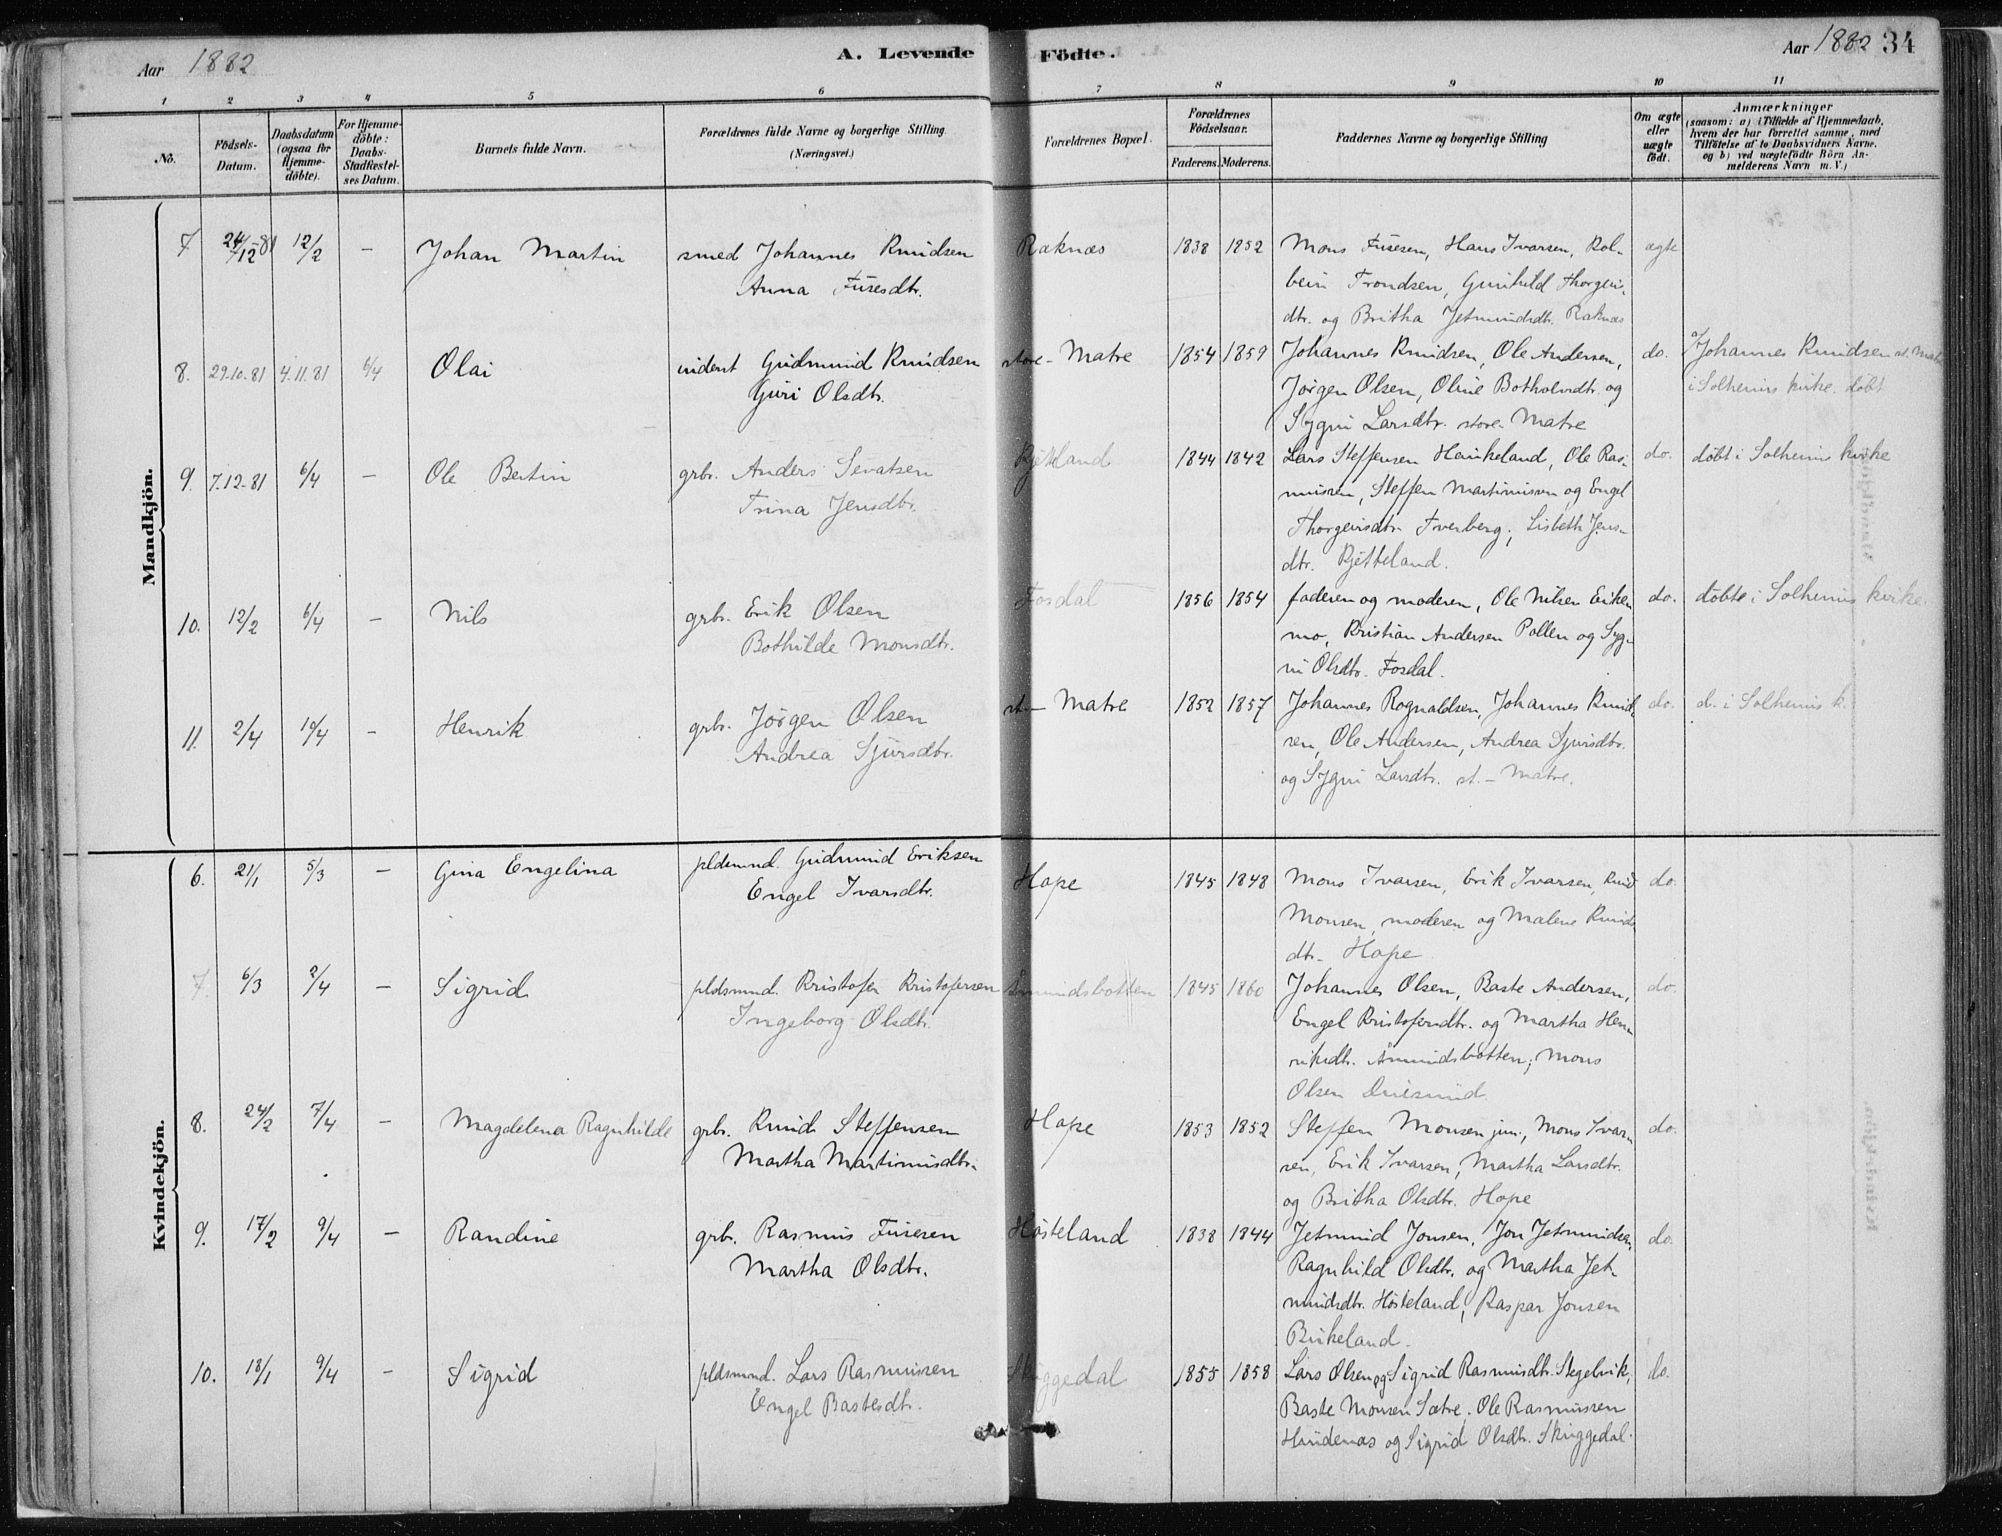 Aar 1882 A. Levende Födte. Aar 1882 34
1 2 3 4 5 6 7 8 9 10 11
No. Födsels-Datum. Daabsdatum (ogsaa for Hjemmedöbte). For Hjemmedöbte: Daabs-Stadfæstelses Datum. Barnets fulde Navn. Forældrenes fulde Navne og borgerlige Stilling. (Næringsvei.) Forældrenes Bopæl. Forældrenes Födselsaar. Faderens. Moderens. Faddernes Navne og borgerlige Stilling Om ægte eller uægte födt. Anmærkninger (saasom: a) i Tilfælde af Hjemmedaab, hvem der har forrettet samme, med Tilföielse af to Daabsvidners Navne, og b) ved uægtefödte Börn Anmelderens Navn m. V.)
Mandkjön.
7. 24/12-81 12/2 – Johan Martin smed Johannes Knudsen Raknæs 1838 1852 Mons Fusesen, Hans Ivarsen, Kol-
Anna Fusesdtr. bein Trondsen, Gunhild Thorgeirs-
dtr. og Britha Jetmundsdtr. Raknæs ægte
8. 29.10.81 4.11.81 6/4 Olai inderst Gudmund Knudsen store-Matre 1854 1859 Johannes Knudsen, Ole Andersen, do. Johannes Knudsen st. Matre
Guri Olsdtr. Jørgen Olsen, Oline Botholvsdtr. og i Solheims kirke. døbt
Sygni Larsdtr. store-Matre
9. 7.12-81 6/4 – Ole Bertin grbr. Anders Sevatsen Kjetland 1844 1842 Lars Steffensen Haukeland, Ole Ras- do. døbt i Solheims kirke
Trina Jensdtr. mussen, Steffen Martinussen og Engel
Thorgeirsdtr. Tverberg; Lisbeth Jens-
dtr. Kjetteland.
10. 12/2 6/4 – Nils grbr. Erik Olsen Fosdal 1856 1854 faderen og moderen, Ole Nilsen Eriken do. døbte i Solheims kirke.
Bothilde Monsdtr. mo, Kristian Andersen Pollen og Syg-
ni Olsdtr. Fosdal.
11. 2/4 10/4 – Henrik grbr. Jørgen Olsen st.-Matre 1852 1857 Johannes Rognaldsen, Johannes Knud- do. d. i Solheims k.
Andrea Sjursdtr. sen, Ole Andersen, Andrea Sjursdtr.
og Sygni Larsdtr. st.-Matre.
Kvindekjön.
6. 21/1 5/3 – Gina Engelina pldsmnd. Gudmund Eriksen Hope 1845 1848 Mons Ivarsen, Erik Ivarsen, Knud do.
Engel Ivarsdtr. Monsen, moderen og Malene Knuds-
dtr. Hope
7. 6/3 2/4 – Sigrid pldsmnd. Kristofer Kristofersen Åmundsbotten 1845 1860 Johannes Olsen, Baste Andersen, do.
Ingeborg Olsdtr. Engel Kristofersdtr. og Martha Hen-
riksdtr. Åmundsbotten; Mons
Olsen Duesund.
8. 24/2 7/4 – Magdelena Ragnhilde grbr. Knud Steffensen Hope 1853 1852 Steffen Monsen jun., Mons Ivar- do.
Martha Martinusdtr. sen, Erik Ivarsen, Martha Larsdtr.
og Britha Olsdtr. Hope
9. 17/2 9/4 – Randine grbr. Rasmus Fusesen Høsteland 1838 1844 Jetmund Jonsen, Jon Jetmundsen, do.
Martha Olsdtr. Ragnhild Olsdtr. og Martha Jet-
mundsdtr. Høsteland, Kaspar Jonsen
Birkeland.
10. 18/1 9/4 – Sigrid pldsmnd. Lars Rasmussen Skuggedal 1855 1858 Lars Olsen og Sigrid Rasmusdtr. Stegelvik, do.
Engel Bastesdtr. Baste Monsen Sætre. Ole Rasmussen
Haudenæs og Sigrid Olsdtr. Skuggedal.